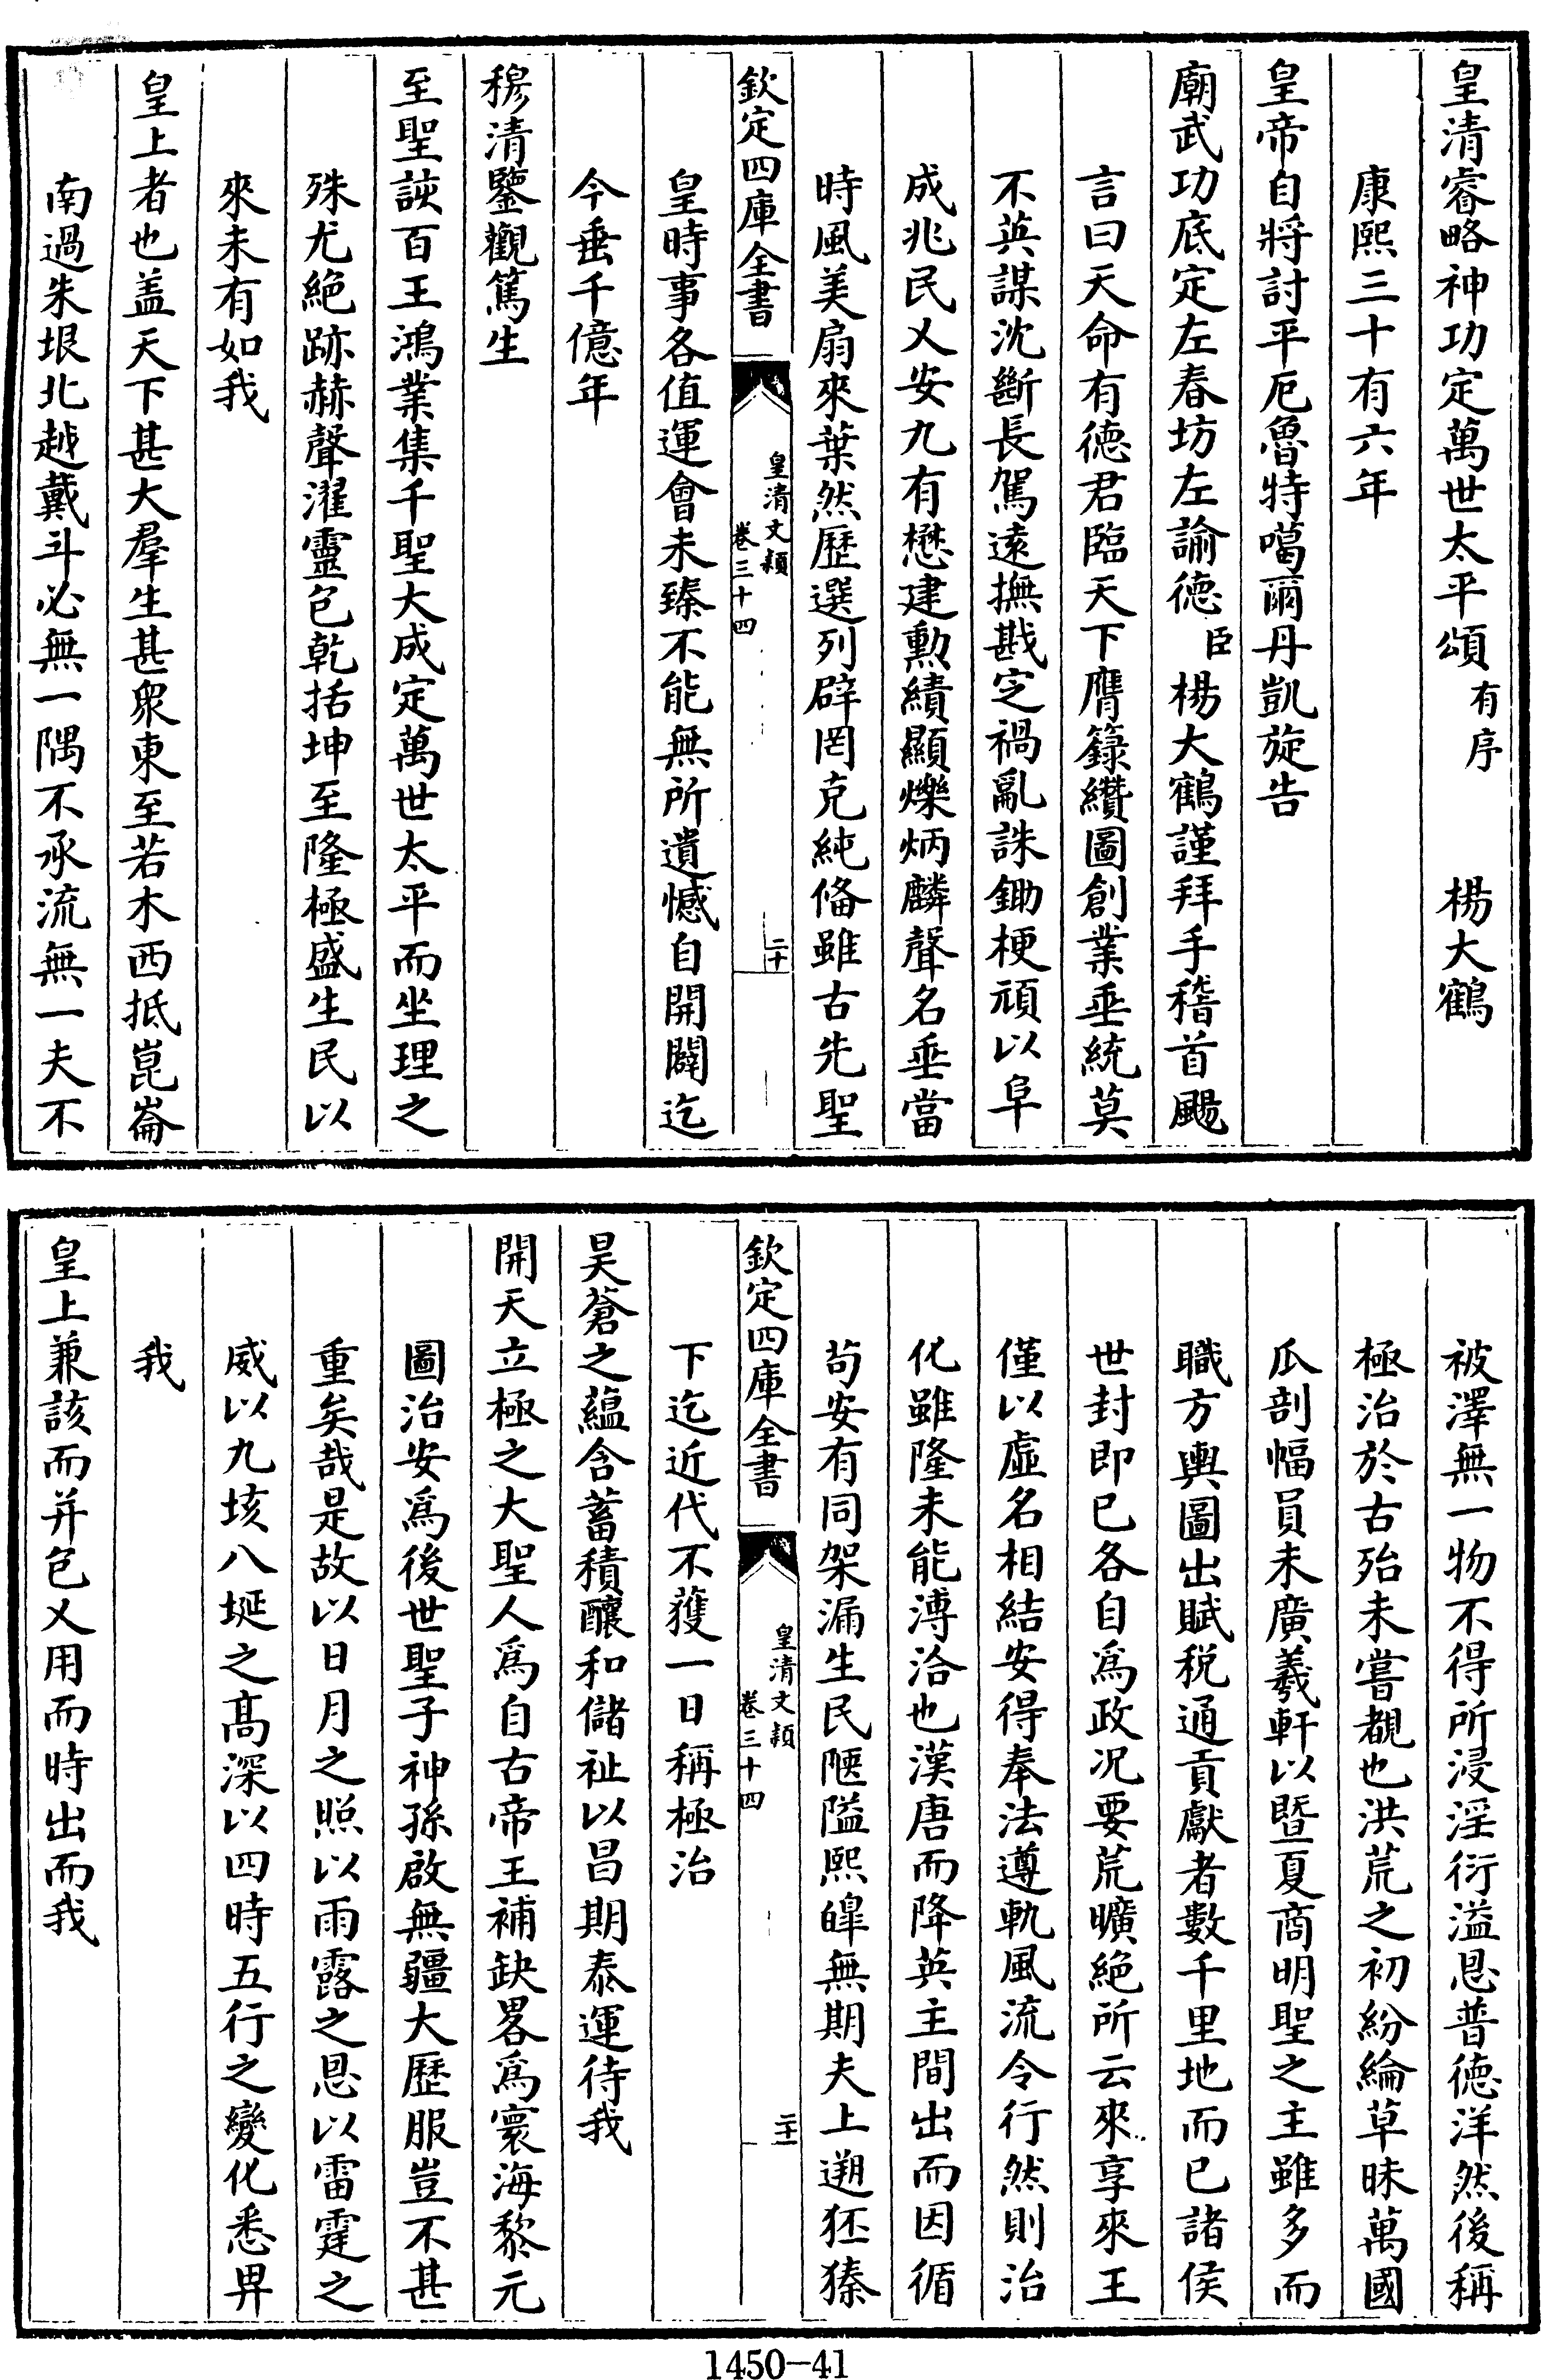 皇清睿略神功定萬世太平頌有序　楊大鶴
康熙三十有六年
皇帝自將討平厄魯特噶爾丹凱旋告
廟武功底定左春坊左諭德臣楊大鶴謹拜手稽首颺
言曰天命有德君臨天下膺籙纘圖創業垂統莫
不英謀沈斷長駕遠撫戡定禍亂誅鋤梗頑以阜
成兆民乂安九有懋建勳績顯爍炳麟聲名垂當
時風美扇來葉然歷選列辟罔克純俻雖古先聖
欽定四庫全書
皇清文穎
卷三十四
二十
皇時事各值運會未臻不能無所遺憾自開闢迄
今垂千億年
穆清鑒觀篤生
至聖誕百王鴻業集千聖大成定萬世太平而坐理之
殊尤絕跡赫聲濯靈包乾括坤至隆極盛生民以
來未有如我
皇上者也盖天下甚大羣生甚衆東至若木西抵崑崙
南過朱垠北越戴斗必無一隅不承流無一夫不
被澤無一物不得所浸淫衍溢恩普德洋然後稱
極治於古殆未嘗覩也洪荒之初紛綸草昧萬國
瓜剖幅員未廣羲軒以暨夏商明聖之主雖多而
職方輿圖出賦税通貢獻者數千里地而已諸侯
世封即已各自爲政况要荒曠絶所云來享來王
僅以虛名相結安得奉法遵軌風流令行然則治
化雖隆未能溥洽也漢唐而降英主間出而因循
苟安有同架漏生民陿隘熙皥無期夫上遡狉獉
欽定四庫全書
皇清文穎
卷三十四
二十一
下迄近代不獲一日稱極治
昊蒼之藴含蓄積釀和儲祉以昌期泰運待我
開天立極之大聖人爲自古帝王補缺畧爲寰海黎元
圖治安爲後世聖子神孫啟無疆大歷服豈不甚
重矣哉是故以日月之照以雨露之恩以雷霆之
威以九垓八埏之髙深以四時五行之變化悉畀
我
皇上兼該而并包乂用而時出而我
1450-41